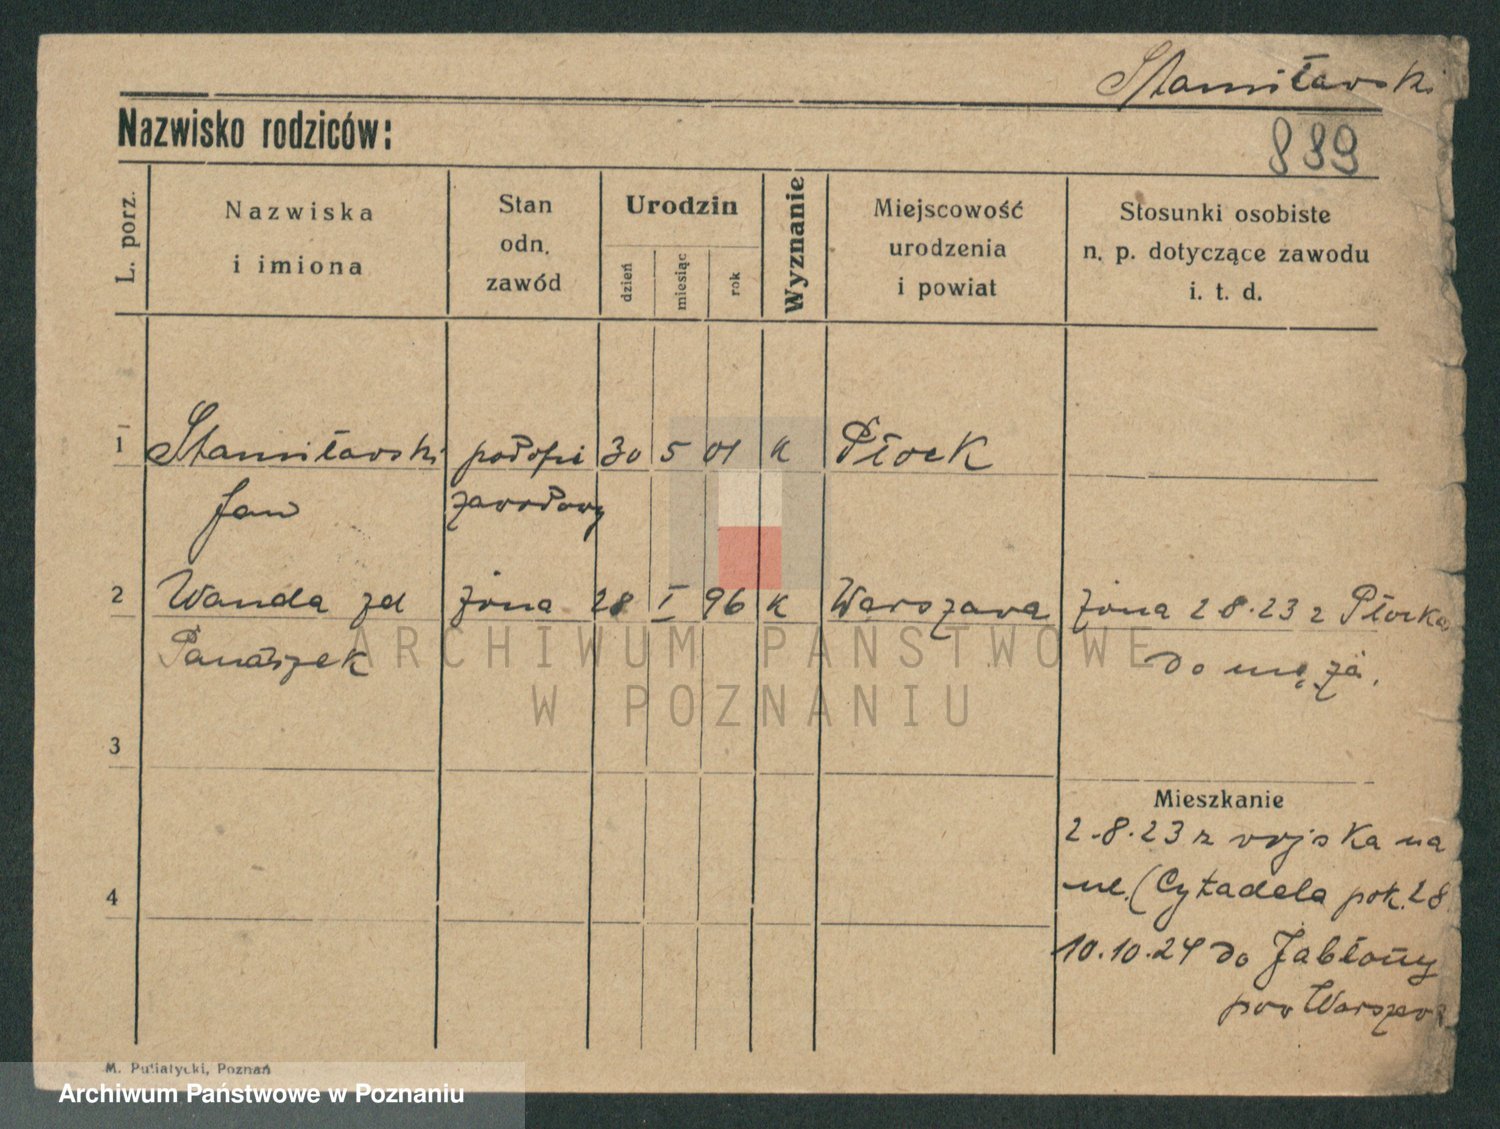 Stamiłavski
Nazwisko rodziców:
889
L. porz.
Nazwiska
i imiona
Stan
odn.
zawód
Urodzin
dzień
miesiąc
rok
Wyznanie
Miejscowość
urodzenia
i powiat
Stosunki osobiste
n. p. dotyczące zawodu
i. t. d.
1 Stamiłavski podofic 30 5 01 k Płock
Jan zawodowy
2 Wanda zd żona 28 I 96 k Warszawa żona 2.8.23 z Płocka
do męża.
ARCHIWUM PAŃSTWOWE
W POZNANIU
3
Mieszkanie
2.8.23 z wojska na
4
ul. (Cytadela pok. 28
10.10.24 do Jabłony
pow Warszawa
M. Putiatycki, Poznań
Archiwum Państwowe w Poznaniu